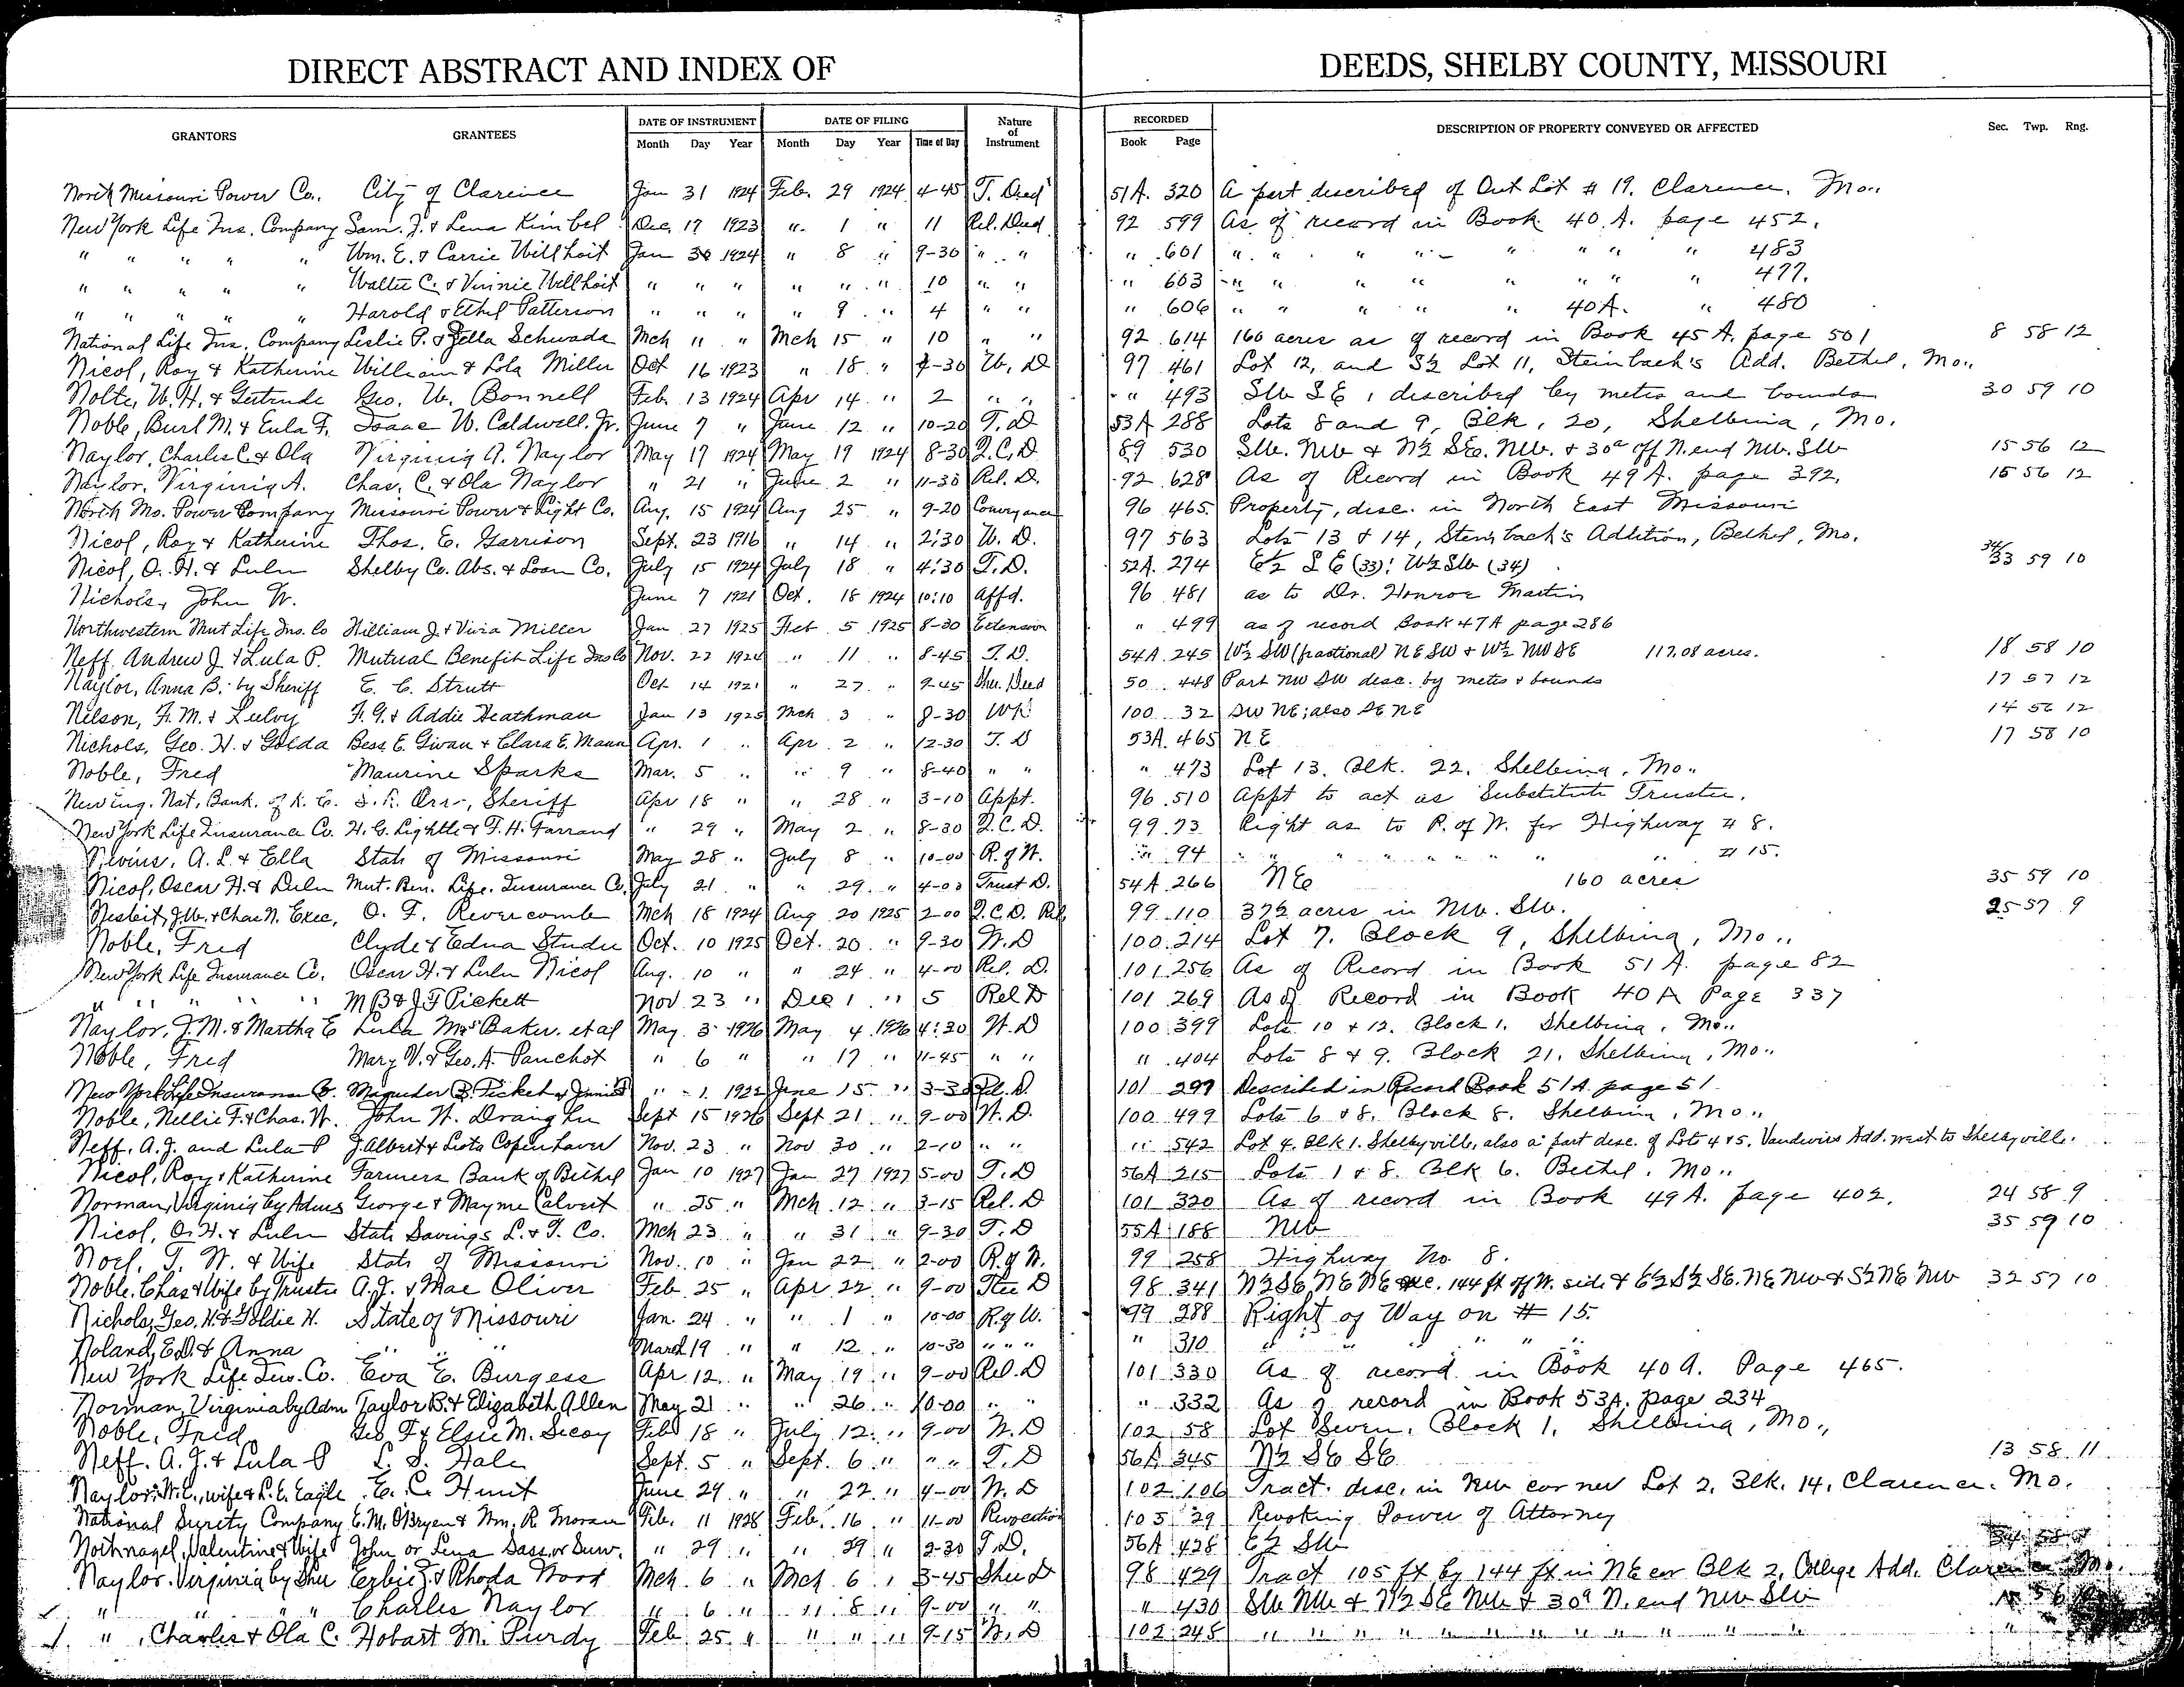 DIRECT ABSTRACT AND INDEX OF DEEDS, SHELBY COUNTY, MISSOURI
GRANTORS GRANTEES DATE OF INSTRUMENT DATE OF FILING Nature of Instrument RECORDED DESCRIPTION OF PROPERTY CONVEYED OR AFFECTED Sec. Twp. Rng.
Month Day Year Month Day Year Time of Day Book Page
North Missouri Power Co. City of Clarence Jan 31 1924 Feb. 29 1924 4-45 T. Deed 51A. 320 A part described of Out Lot # 19, Clarence, Mo..
New York Life Ins. Company Sam. J. & Lena Kimbel Dec. 17 1923 " 1 " 11 Rel. Deed 92 599 As of record in Book 40 A. page 452.
" " " " " Wm. E. & Carrie Willhoit Jan 30 1924 " 8 " 9-30 " " " 601 " " " " " " " " 483
" " " " " Walter C. & Vinnie Willhoit " " " " " " 10 " " " 603 " " " " " " " " 477.
" " " " " Harold & Ethel Patterson " " " " 9 " 4 " " " 606 " " " " " 40A. " 480
National Life Ins. Company Leslie P. & Zella Schwada Mch " " Mch 15 " 10 " " 92 614 160 acres as of record in Book 45 A. page 501 8 58 12
Nicol, Roy & Katherine William & Lola Miller Oct 16 1923 " 18 " 4-30 W. D 97 461 Lot 12, and S½ Lot 11, Steinbach's Add. Bethel, Mo..
Nolte, W. H. & Gertrude Geo. W. Bonnell Feb. 13 1924 Apr 14 " 2 " " " 493 SW SE, described by metes and bounds 30 59 10
Noble, Burl M. & Eula F. Isaac W. Caldwell, Jr. June 7 " June 12 " 10-20 T. D 53A 288 Lots 8 and 9, Blk, 20, Shelbina, Mo.
Naylor, Charles C. & Ola Virginia A. Naylor May 17 1924 May 19 1924 8-30 Q.C.D. 89 530 SW. NW & N½ SE. NW. & 30a off N. end NW. SW 15 56 12
Naylor, Virginia A. Chas. C. & Ola Naylor " 21 " June 2 " 11-30 Rel. D. 92 628 As of Record in Book 49 A. page 392. 15 56 12
North Mo. Power Company Missouri Power & Light Co. Aug. 15 1924 Aug 25 " 9-20 Conveyance 96 465 Property, desc. in North East Missouri
Nicol, Roy & Katherine Thos. E. Garrison Sept. 23 1916 " 14 " 2:30 W. D. 97 563 Lots 13 & 14, Steinbach's Addition, Bethel, Mo.
Nicol, O. H. & Lulu Shelby Co. Abs. & Loan Co. July 15 1924 July 18 " 4:30 T. D. 52A. 274 E½ SE (33); W½ SW (34) 34/33 59 10
Nichols, John W. June 7 1921 Oct. 18 1924 10:10 Affd. 96 481 as to Dr. Monroe Martin
Northwestern Mut Life Ins. Co William J. & Vivia Miller Jan 27 1925 Feb 5 1925 8-30 Extension " 499 as of record Book 47A page 286
Neff, Andrew J. & Lula P. Mutual Benefit Life Ins Co Nov. 22 1924 " 11 " 8-45 T. D. 54A. 245 W½ SW (fractional) NE SW & W½ NW SE 117.08 acres. 18 58 10
Naylor, Anna B. by Sheriff E. C. Strutt Oct 14 1921 " 27 " 9-45 Sher. Deed 50 448 Part NW SW desc. by metes & bounds 17 57 12
Nilson, F. M. & Lulvy F. G. & Addie Heathman Jan 13 1925 Mch 3 " 8-30 WD 100 32 SW NE; also SE NE 14 56 12
Nichols, Geo. H. & Golda Bess E. Givan & Clara E. Mann Apr. 1 " Apr 2 " 12-30 T. D 53A. 465 NE 17 58 10
Noble, Fred Maurine Sparks Mar. 5 " " 9 " 8-40 " " " 473 Lot 13. Blk. 22. Shelbina, Mo..
New Eng. Nat. Bank. of K. C. Orr, Sheriff Apr 18 " " 28 " 3-10 Appt. 96 510 Appt to act as Substitute Trustee.
New York Life Insurance Co. H. G. Lightle & T. H. Farrand " 29 " May 2 " 8-30 Q.C.D. 99 73 Right as to R. of W. for Highway # 8.
Nevins, A. L. & Ella State of Missouri May 28 " July 8 " 10-00 R. of W. " 94 " " " " " " " " # 15.
Nicol, Oscar H. & Lulu Mut. Ben. Life. Insurance Co. July 21 " " 29 " 4-00 Trust D. 54A 266 NE 160 acres 35 59 10
Nesbit, J.W. & Chas N. Exec, O. F. Revercomb Mch 18 1924 Aug 20 1925 2-00 Q.C.D. Rel 99 110 37½ acres in NW. SW. 25 57 9
Noble, Fred Clyde & Edna Studer Oct. 10 1925 Oct. 20 " 9-30 W. D 100 214 Lot 7. Block 9, Shelbina, Mo..
New York Life Insurance Co. Oscar H. & Lulu Nicol Aug. 10 " " 24 " 4-00 Rel. D. 101 256 As of Record in Book 51 A. page 82
" " " " " M B & J F Pickett Nov 23 " Dec 1 " 5 Rel D 101 269 As of Record in Book 40 A Page 337
Naylor, J. M. & Martha E Lula Baker. et al May 3 1926 May 4 1926 4:30 W. D 100 399 Lots 10 & 12. Block 1. Shelbina, Mo..
Noble, Fred Mary V. & Geo. A. Panchot " 6 " " 17 " 11-45 " " " 404 Lots 8 & 9. Block 21. Shelbina, Mo..
New York Life Insurance Co. Magruder B. Picket & " 1 1922 June 15 " 3-30 Rel. D. 101 297 Described in Record Book 51A. page 51
Noble, Nellie F. & Chas. W. John W. Draughn Sept 15 1926 Sept 21 " 9-00 W. D. 100 499 Lots 6 & 8. Block 8. Shelbina, Mo..
Neff, A. J. and Lula P J. Albert & Leota Copenhaver Nov. 23 " Nov 30 " 2-10 " " " 542 Lot 4. Blk 1. Shelbyville, also a part desc. of Lots 4 & 5. Vandivers Add. west to Shelbyville.
Nicol, Roy & Katherine Farmers Bank of Bethel Jan 10 1927 Jan 27 1927 5-00 T. D 56A 215 Lots 1 & 8. Blk 6. Bethel, Mo..
Norman, Virginia by Adms George & Mayme Calvert " 25 " Mch 12 " 3-15 Rel. D 101 320 As of record in Book 49 A. page 402. 24 58 9
Nicol, O. H. & Lulu State Savings L. & T. Co. Mch 23 " " 31 " 9-30 T. D 55A 188 NW 35 59 10
Noel, T. W. & Wife State of Missouri Nov. 10 " Jan 22 " 2-00 R. of W. 99 258 Highway No. 8.
Noble. Chas & Wife by Trustee A. J. & Mae Oliver Feb. 25 " Apr 22 " 9-00 Tee D 98 341 N½ SE, NE NE exc. 144 ft off W. side & E½ S½ SE. NE NW & S½ NE NW 32 57 10
Nichols, Geo. H. & Goldie H. State of Missouri Jan. 24 " " 1 " 10-00 R. of W. 99 288 Right of Way on # 15.
Noland, E.D. & Anna " " " March 19 " " 12 " 10-30 " " " " 310 " " " " "
New York Life Ins. Co. Eva E. Burgess Apr 12 " May 19 " 9-00 Rel. D 101 330 As of record in Book 40 A. Page 465.
Norman, Virginia by Adm Taylor B. & Elizabeth Allen May 21 " " 26 " 10-00 " " " 332 As of record in Book 53A. page 234
Noble, Fred Geo. F & Elsie M. Secoy Feb 18 " July 12 " 9-00 W. D 102 58 Lot Seven, Block 1, Shelbina, Mo..
Neff. A. J. & Lula P L. S. Hale Sept. 5 " Sept. 6 " " " T. D 56A 345 N½ SE SE 13 58 11
Naylor, W. C., wife & L. E. Eagle E. C. Hunt June 29 " " 22 " 4-00 W. D 102 106 Tract. desc. in NW corner Lot 2. Blk. 14, Clarence. Mo.
National Surety Company E. M. O'Bryen & Wm. R. Moran Feb. 11 1928 Feb. 16 " 11-00 Revocation 105 29 Revoking Power of Attorney
Nothnagel, Valentine & Wife John or Lena Sass, or Surv. " 29 " " 29 " 2-30 T. D. 56A 428 E½ SW
Naylor. Virginia by Sher Ezbie & Rhoda Wood Mch. 6 " Mch 6 " 3-45 Sher D 98 429 Tract 105 ft by 144 ft in NE cor Blk 2, College Add. Clarence Mo.
" " " " Charles Naylor " 6 " " 8 " 9-00 " " " 430 SW NW & N½ SE NW & 30a N. end NW SW
" , Charles & Ola C. Hobart M. Purdy Feb 25 " " " " 9-15 W. D 102 248 " " " " " " " " " " " " "